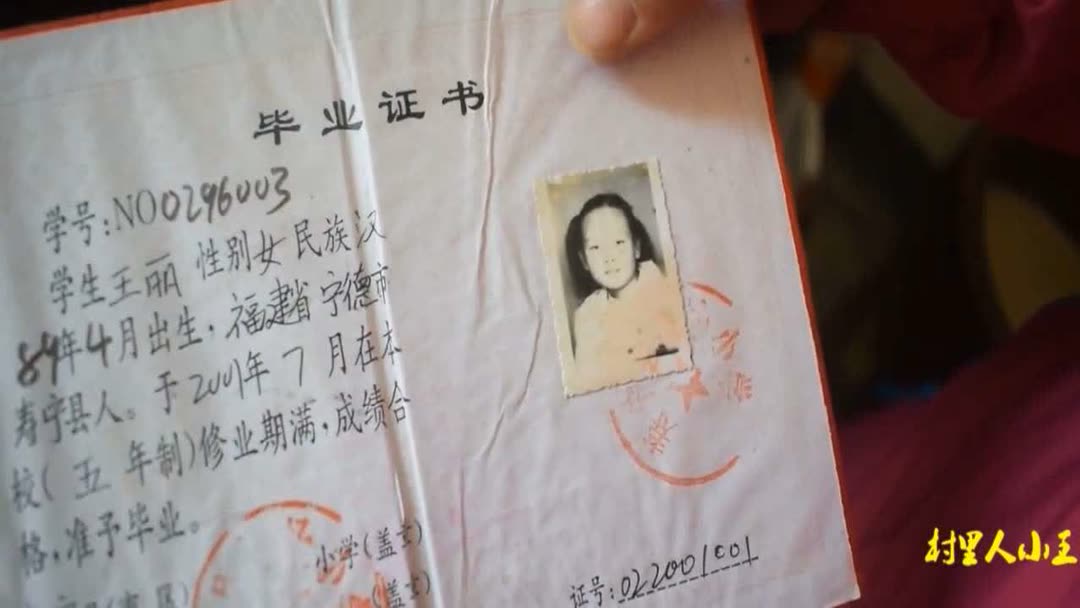 毕业证书
学号:NO0296003
学生王丽 性别女 民族汉
89年4月出生,福建省宁德市
寿宁县人。于2001年 7 月在本
校(五 年制)修业期满,成绩合
格,准予毕业。
小学(盖章)
(盖章)
证号:022001001
村里人小王